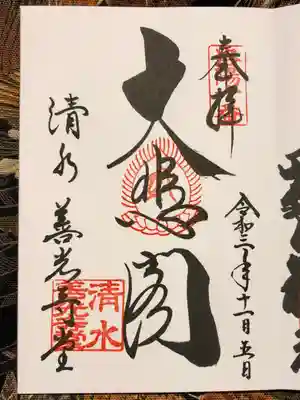 奉拝
令和三年十一月五日
大悲閣
清水 善光寺堂
清水
善光寺堂